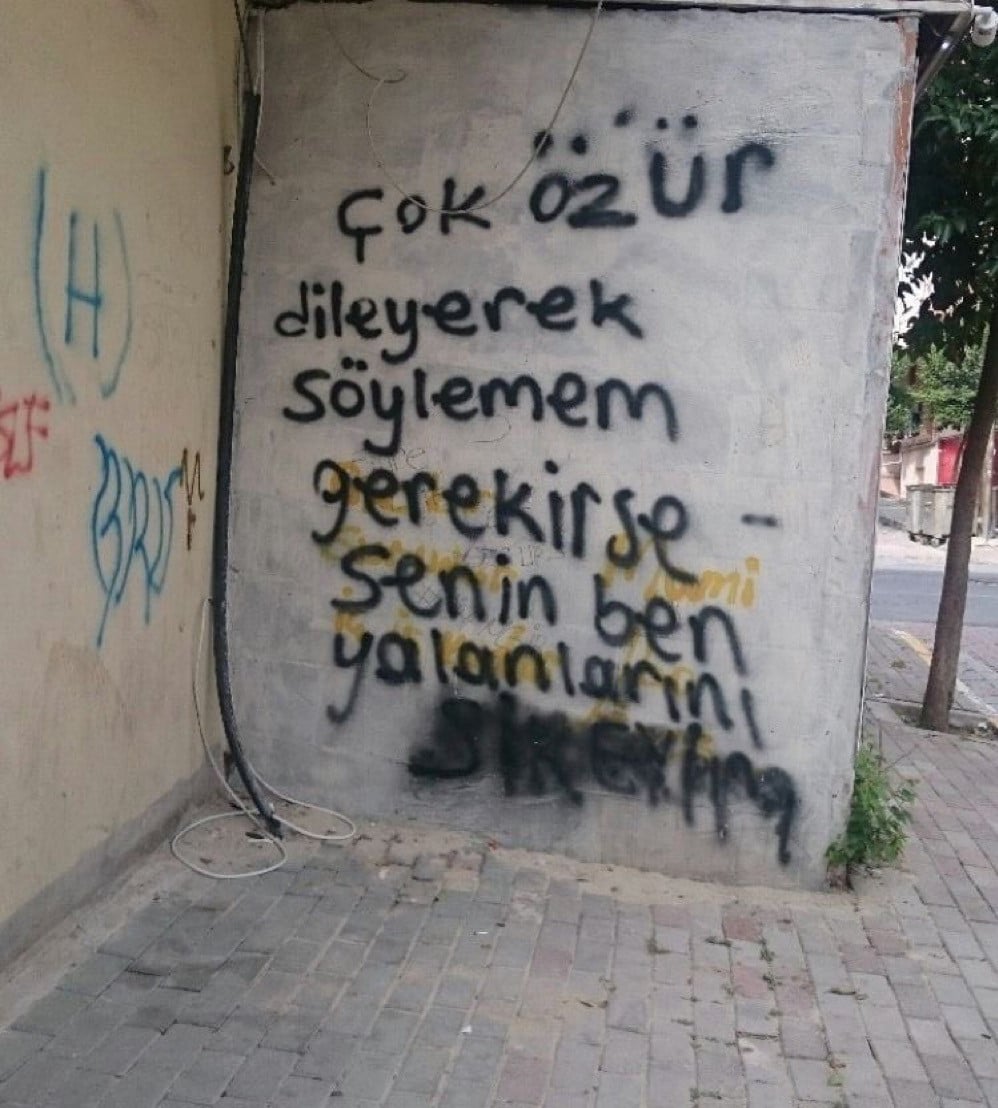 Çok özür
dileyerek
söylemem
gerekirse -
senin ben
yalanlarını
SİKEYİM
(H)